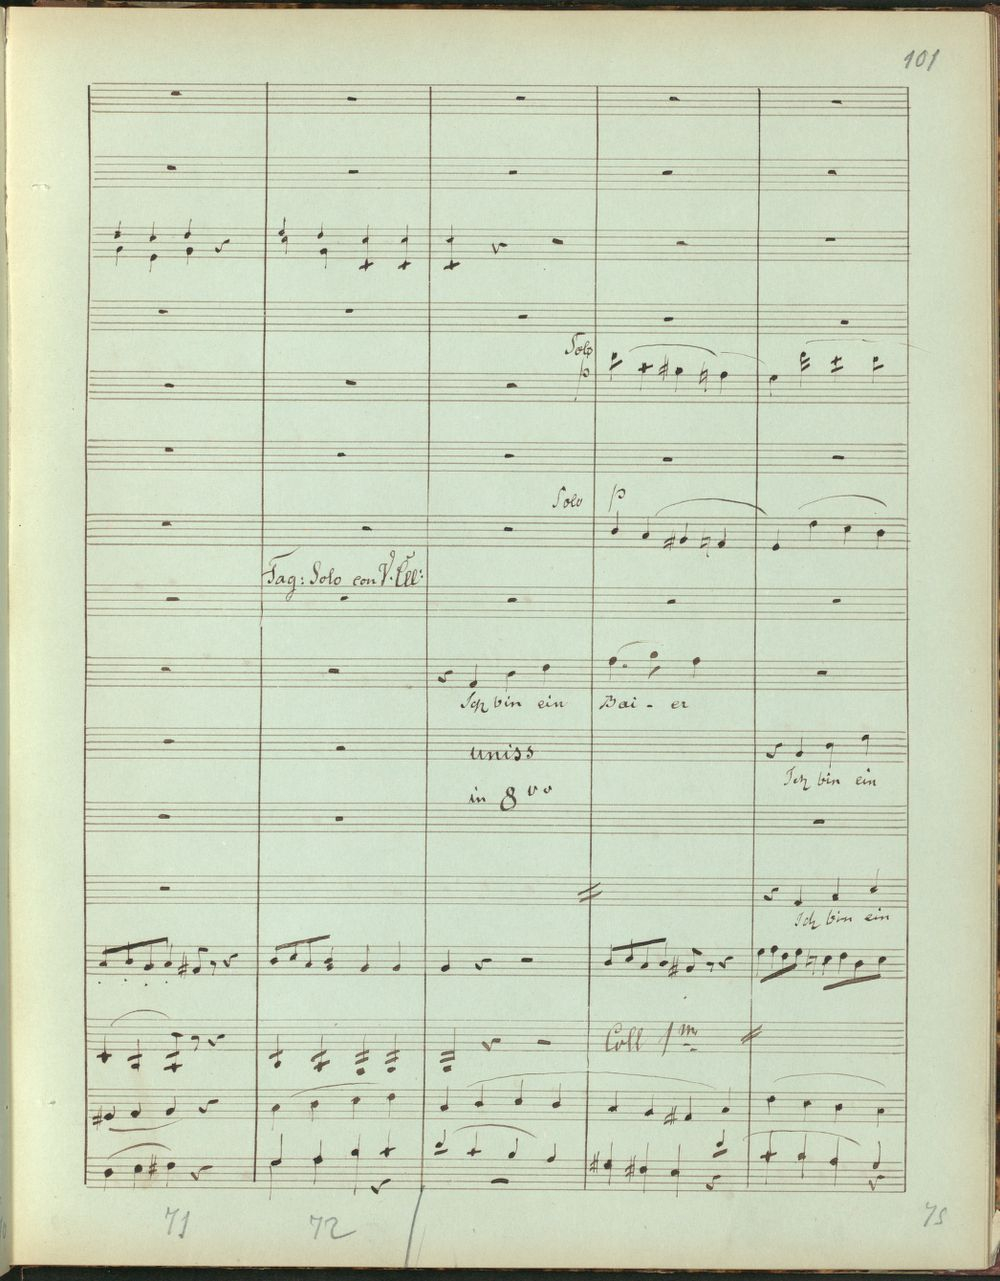 101
Solo
p
Solo p
Fag: Solo con V.Cll:
Ich bin ein Bai - er
uniss
Ich bin ein
in 8va
Ich bin ein
Coll 1m
71 72 75